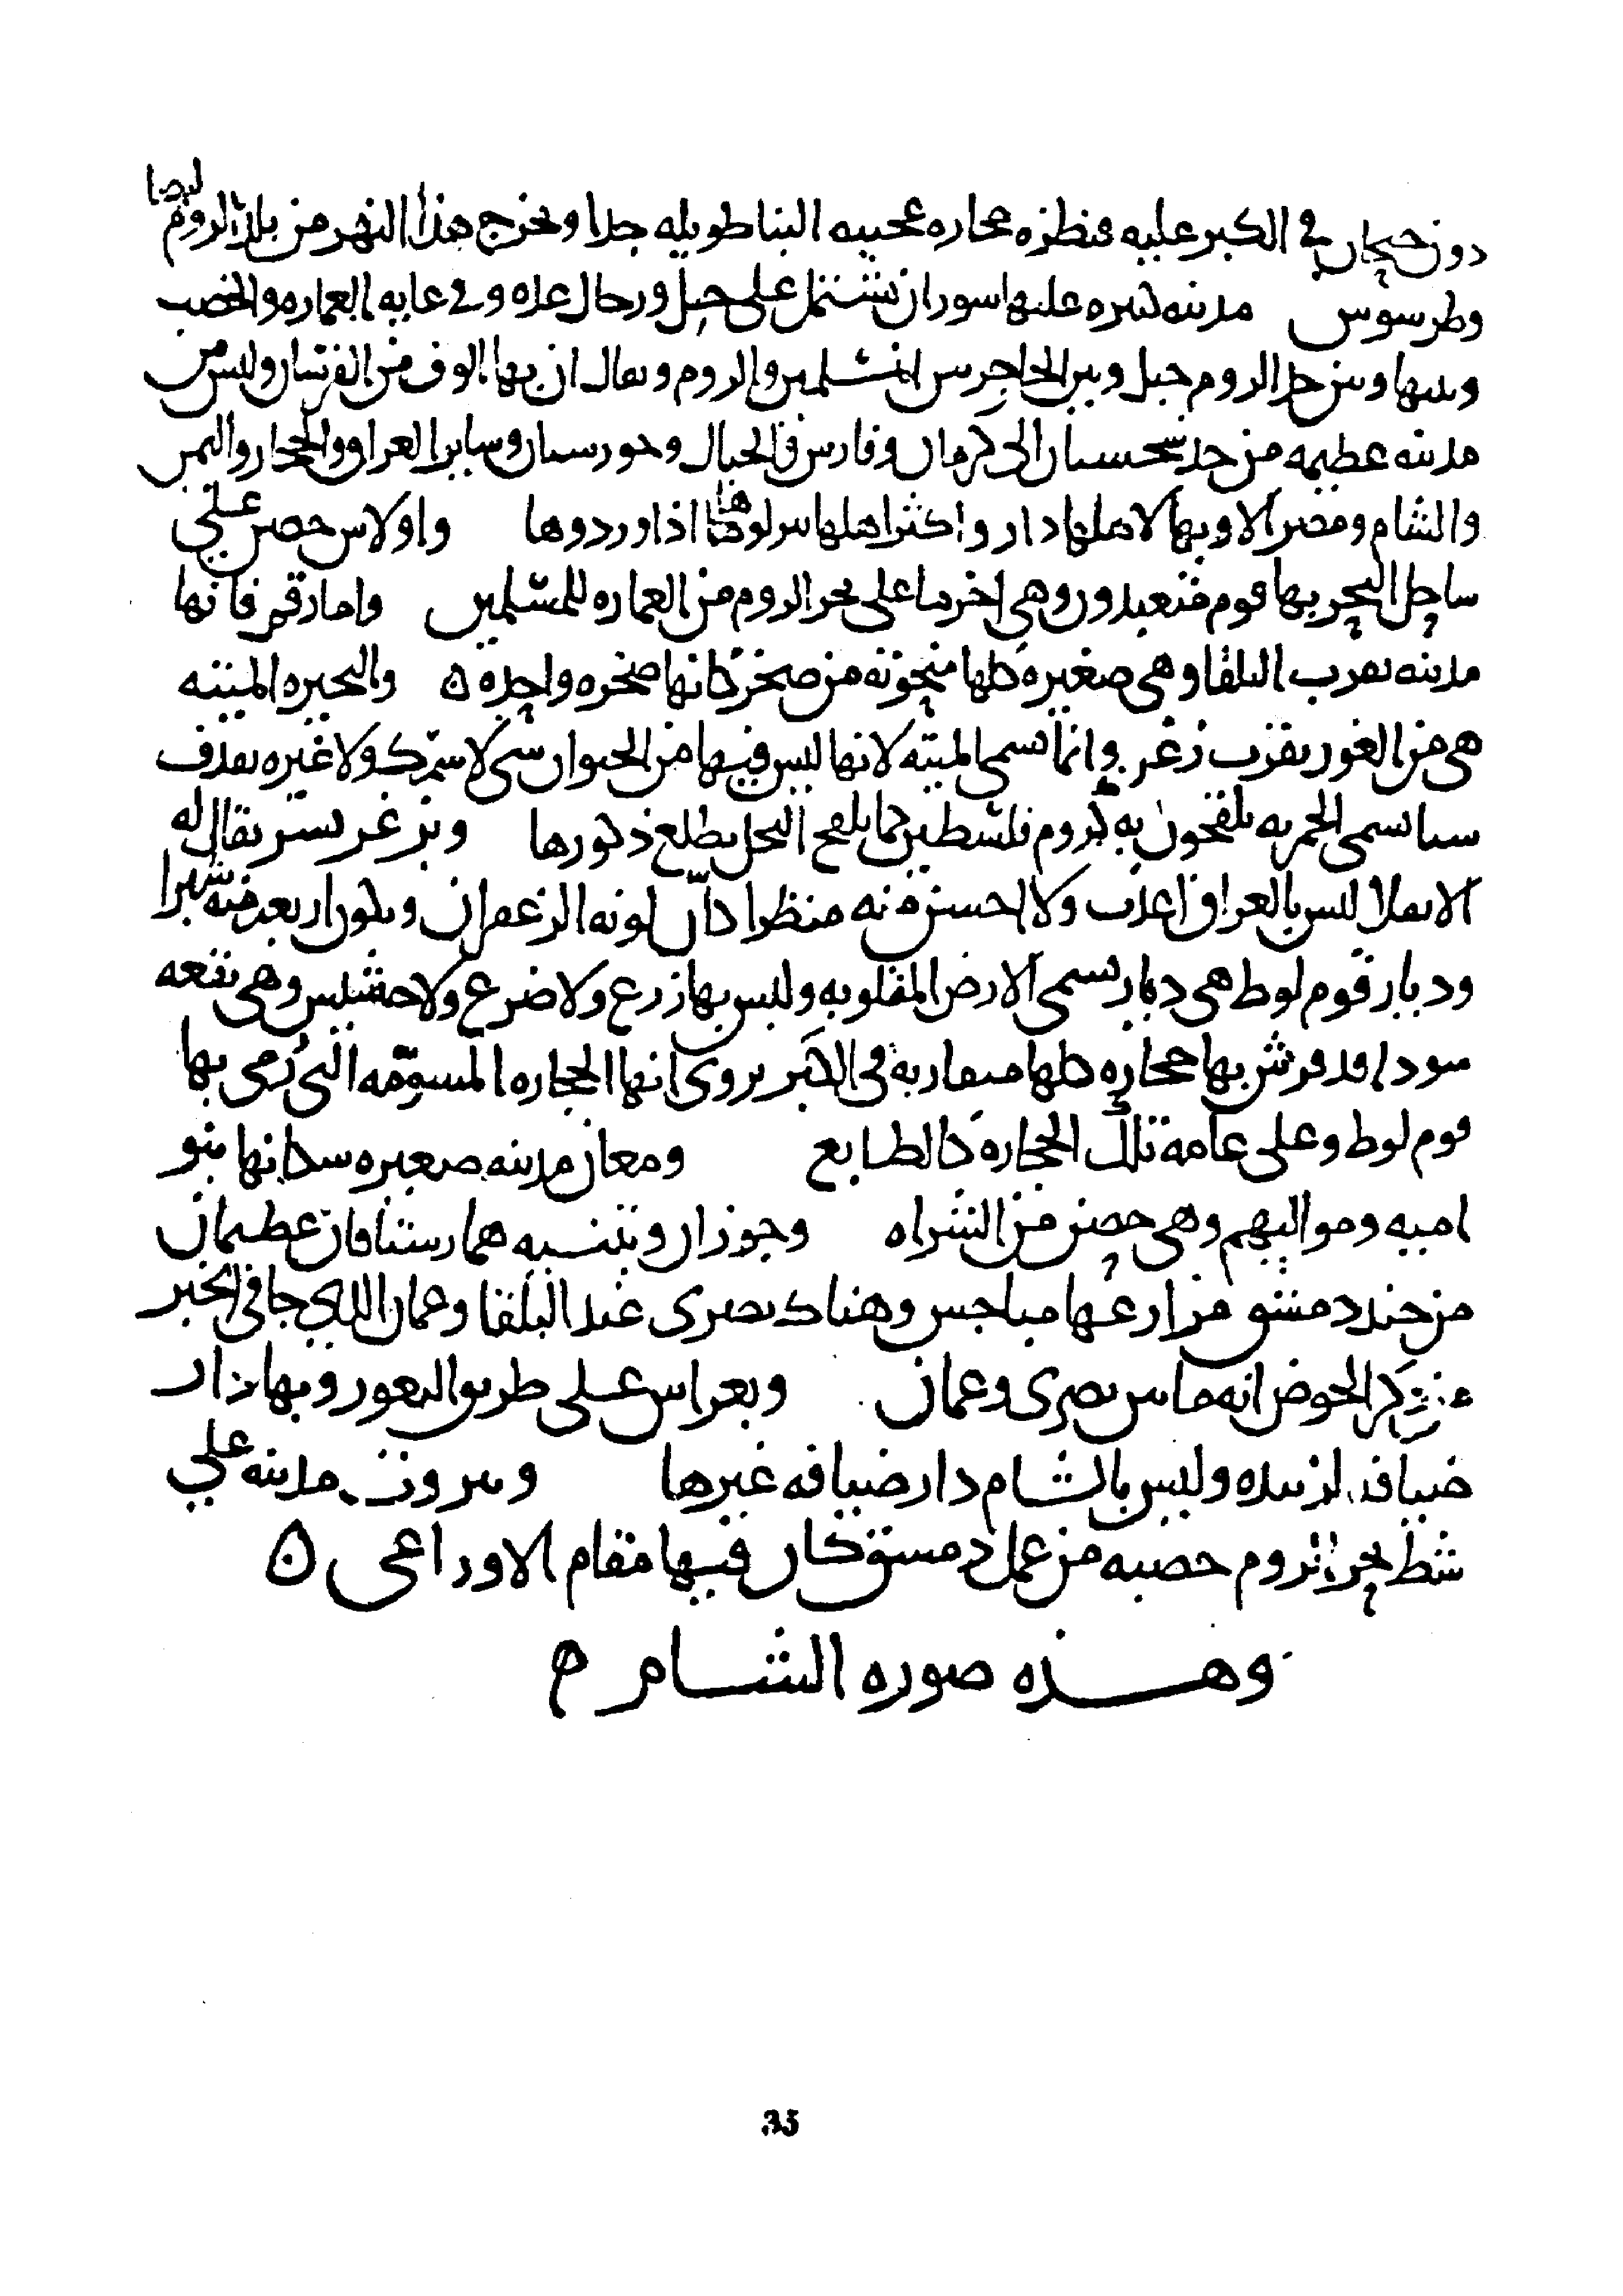 دون جيحان في الكبر عليه قنطره حجاره عجيبه البنا طويله جدا ويخرج هذا النهر من بلاد الروم ايضا
وطرسوس مدينه كبيره عليها سوران تشتمل على خيل ورجال وعده وفي غايه العماره والخصب
وبينها وبين حد الروم جبل وهي الحاجز بين المسلمين والروم ويقال ان بها الوف من الفرسان وليس من
مدينه عظيمه من حد سجستان الى كرمان وفارس والجبال وخورستان وساير العراق والحجاز واليمن
والشام ومصر الا وبها لاهلها دار واكثر اهلها ينزلونها اذا وردوها واولاس حصن على
ساحل البحر بها قوم متعبدون وهي اخر ما على بحر الروم من العماره للمسلمين واما رقيم فانها
مدينه بقرب البلقا وهي صغيره كلها منحوته من صخر كانها صخره واحده ه والبحيره الميته
هي من الغور بقرب زغر وانما تسمى الميته لانها ليس فيها من الحيوان شي لا سمك ولا غيره تقذف
شيا يسمى الحمريه يلقحون به كروم فلسطين كما يلقح النخل بطلع ذكورها وبزغر بسر يقال له
الانقلا ليس بالعراق اعذب ولا احسن منه منظرا كان لونه الزعفران ويكون اربعه منه شبرا
وديار قوم لوط هي ديار تسمى الارض المقلوبه وليس بها زرع ولا ضرع ولا حشيش وهي بقعه
سودا قد فرش بها حجاره كلها متقاربه في الكبر يروى انها الحجاره المسومه التي رمي بها
قوم لوط وعلى عامه تلك الحجاره كالطابع ومعان مدينه صغيره سكانها بنو
اميه ومواليهم وهي حصن من الشراه وحوران وبثنيه هما رستاقان عظيمان
من جند دمشق مزارعها مباخس وهناك بصرى عند البلقا وعمان الذي جا في الخبر
عن ذكر الحوض انه ما بين بصرى وعمان وبغراس على طريق الثغور وبها دار
ضيافه لزبيده وليس بالشام دار ضيافه غيرها وبيروت مدينه على
شط بحر الروم خصبه من عمل دمشق كان فيها مقام الاوزاعي ه
وهذه صوره الشام م
35